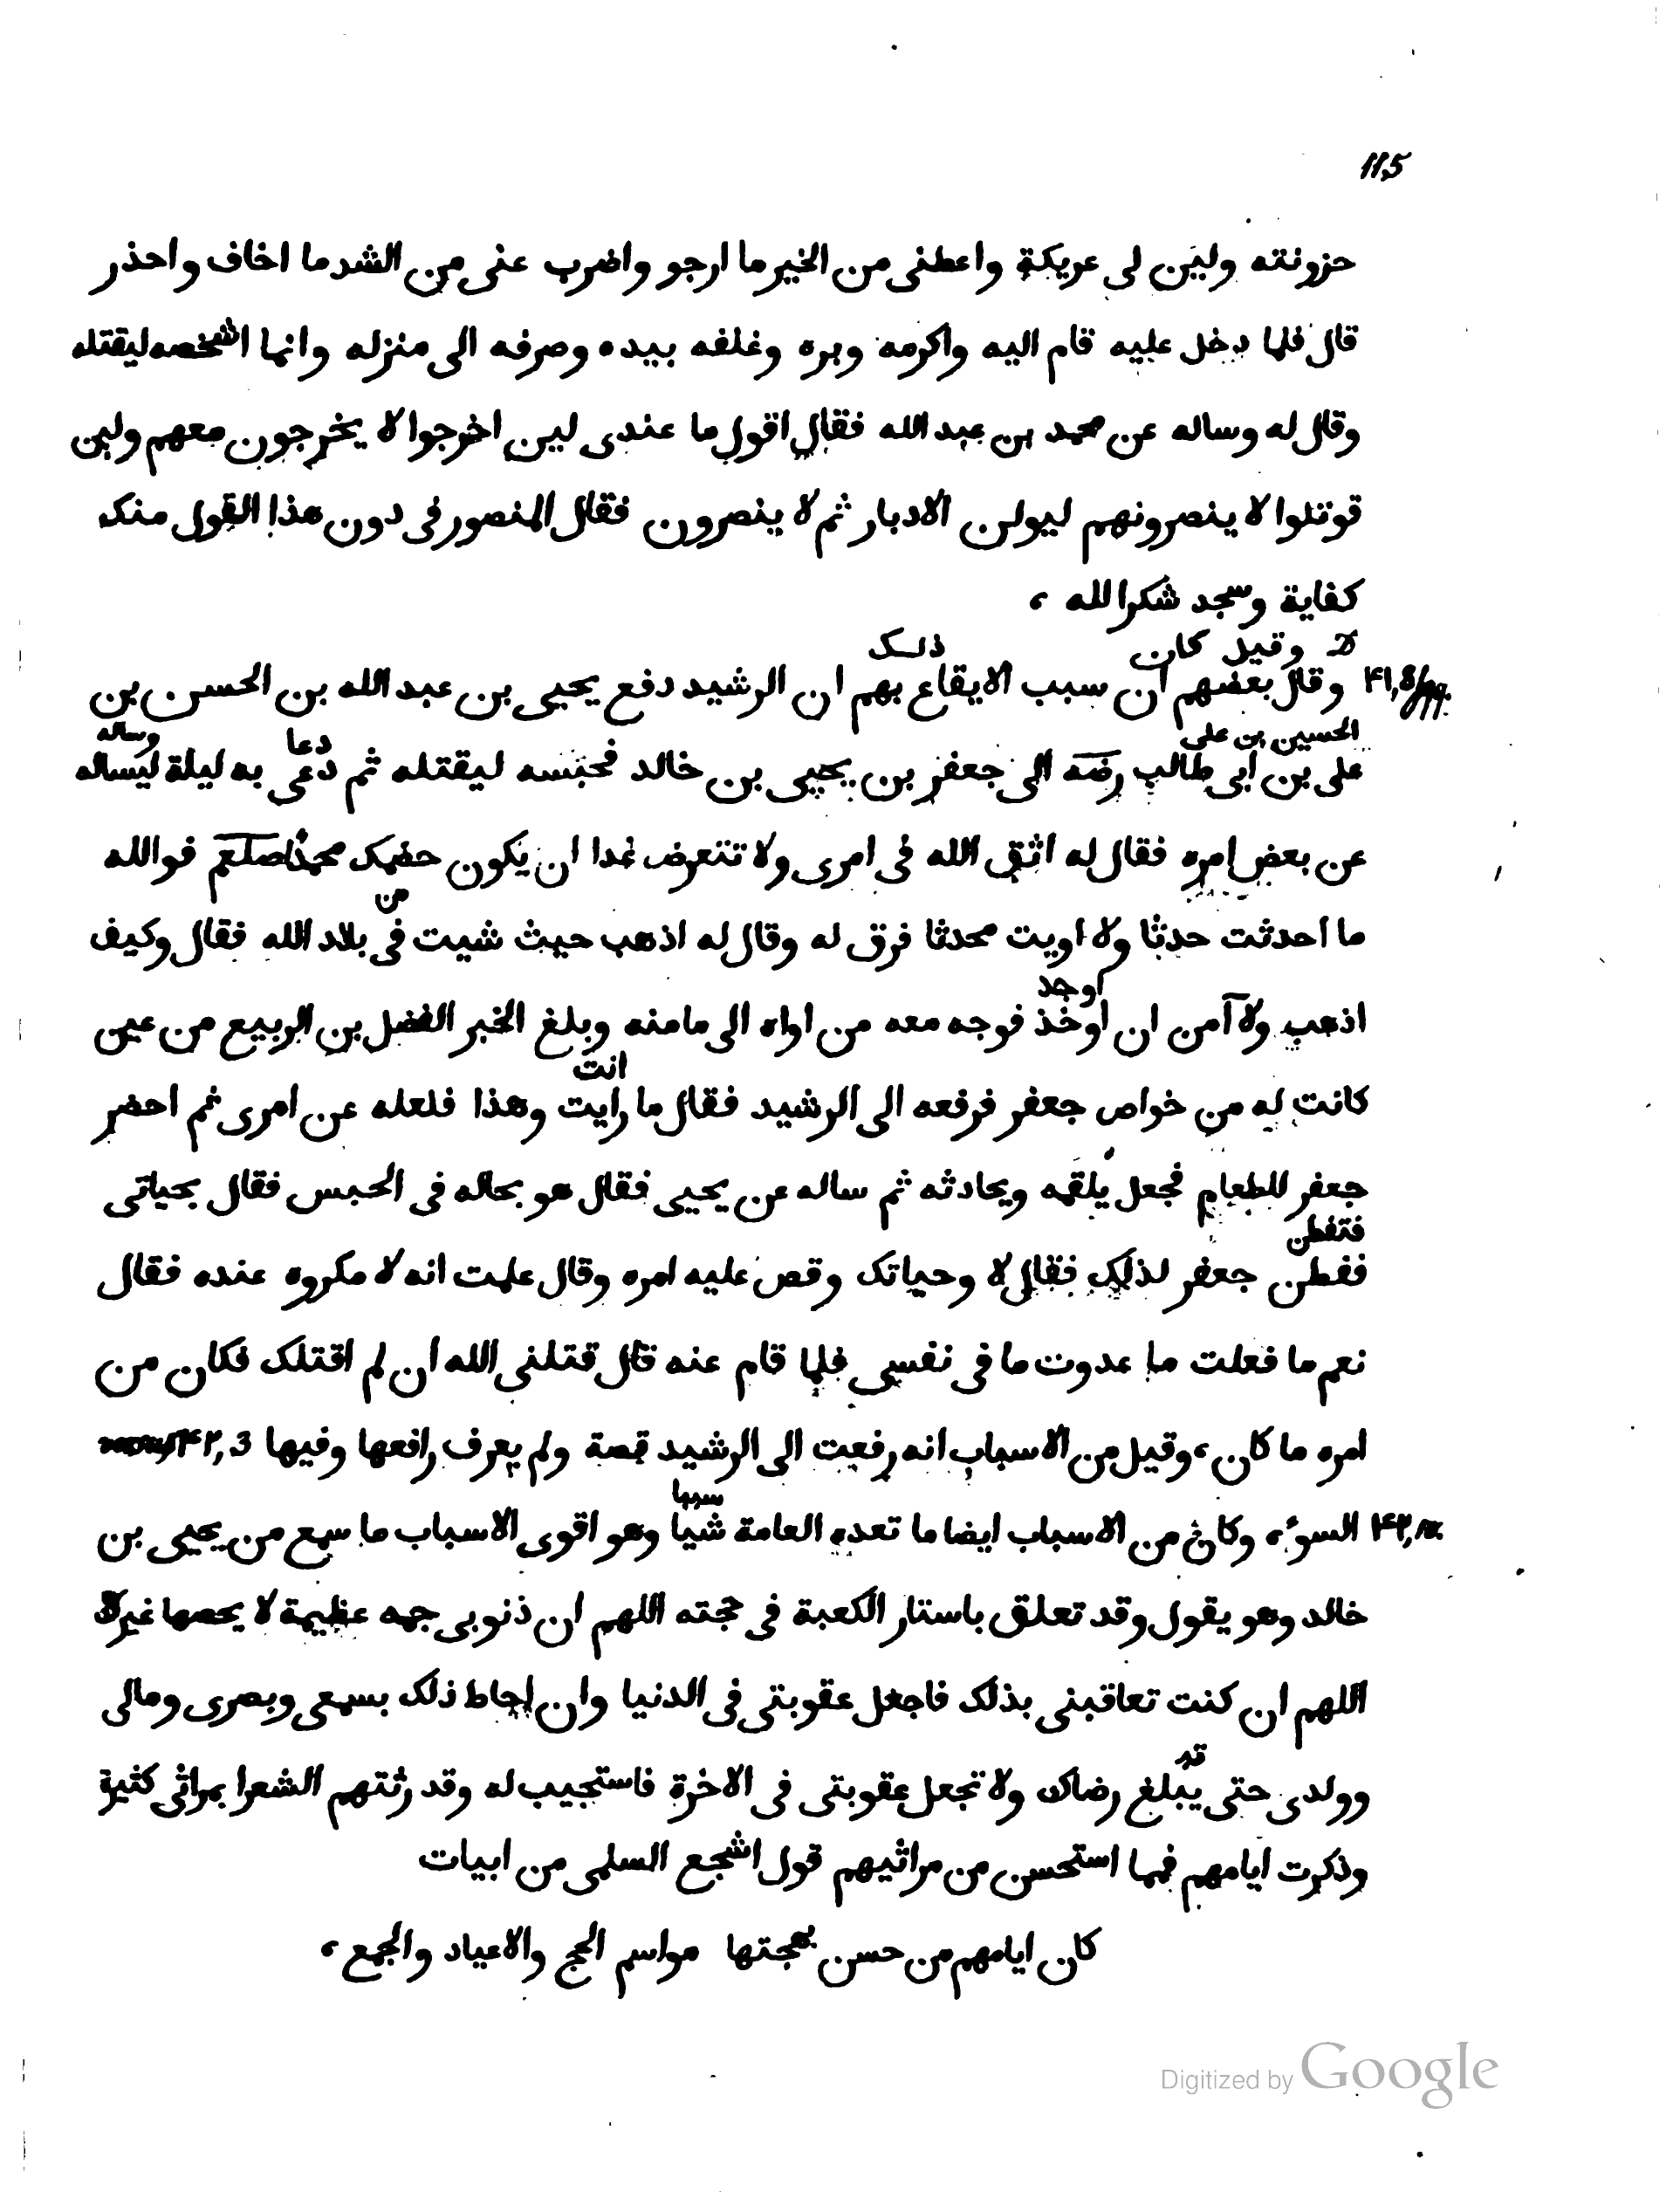 115
حزونته ولين لى عريكة واعطنى من الخير ما ارجو واضرب عنى من الشد ما اخاف واحذر
قال فلما دخل عليه قام اليه واكرمه وبره وغلفه بيده وصرفه الى منزله وانما اشخصه ليقتله
وقال له وساله عن محمد بن عبد الله فقال اقول ما عندى لين اخرجوا لا يخرجون معهم ولين
قوتلوا لا ينصرونهم ليولن الادبار ثم لا ينصرون فقال المنصور فى دون هذا القول منك
كفاية وسجد شكرا لله ،
وقيل كان ذلك
۴۱,8 وقال بعضهم ان سبب الايقاع بهم ان الرشيد دفع يحيى بن عبد الله بن الحسن بن
الحسين بن على دعا وساله
على بن ابى طالب رضه الى جعفر بن يحيى بن خالد فحبسه ليقتله ثم دعى به ليلة ليساله
عن بعض امره فقال له اتق الله فى امرى ولا تتعرض غدا ان يكون خصمك محمدا صلعم فوالله
من
ما احدثت حدثا ولا اويت محدثا فرق له وقال له اذهب حيث شيت فى بلاد الله فقال وكيف
اوجد
اذهب ولا آمن ان اوخذ فوجه معه من اواه الى مامنه وبلغ الخبر الفضل بن الربيع من عين
انت
كانت له من خواص جعفر فرفعه الى الرشيد فقال ما رايت وهذا فلعله عن امرى ثم احضر
جعفر للطعام فجعل يلقمه ويحادثه ثم ساله عن يحيى فقال هو بحاله فى الحبس فقال بحياتى
فتفطن
ففطن جعفر لذلك فقال لا وحياتك وقص عليه امره وقال علمت انه لا مكروه عنده فقال
نعم ما فعلت ما عدوت ما فى نفسى فلما قام عنه قال قتلنى الله ان لم اقتلك فكان من
امره ما كان ، وقيل من الاسباب انه رفعت الى الرشيد قصة ولم يعرف رافعها وفيها ۴۲,3
سببا
۴۲, السوء ، وكان من الاسباب ايضا ما تعده العامة شيا وهو اقوى الاسباب ما سمع من يحيى بن
خالد وهو يقول وقد تعلق باستار الكعبة فى حجته اللهم ان ذنوبى جمه عظيمة لا يحصها غيرك
اللهم ان كنت تعاقبنى بذلك فاجعل عقوبتى فى الدنيا وان احاط ذلك بسمعى وبصرى ومالى
وولدى حتى يبلغ رضاك ولا تجعل عقوبتى فى الاخرة فاستجيب له وقد رثتهم الشعرا بمراثى كثيرة
وذكرت ايامهم فمما استحسن من مراثيهم قول اشجع السلمى من ابيات
كان ايامهم من حسن بهجتها مواسم الحج والاعياد والجمع ،
Digitized by Google